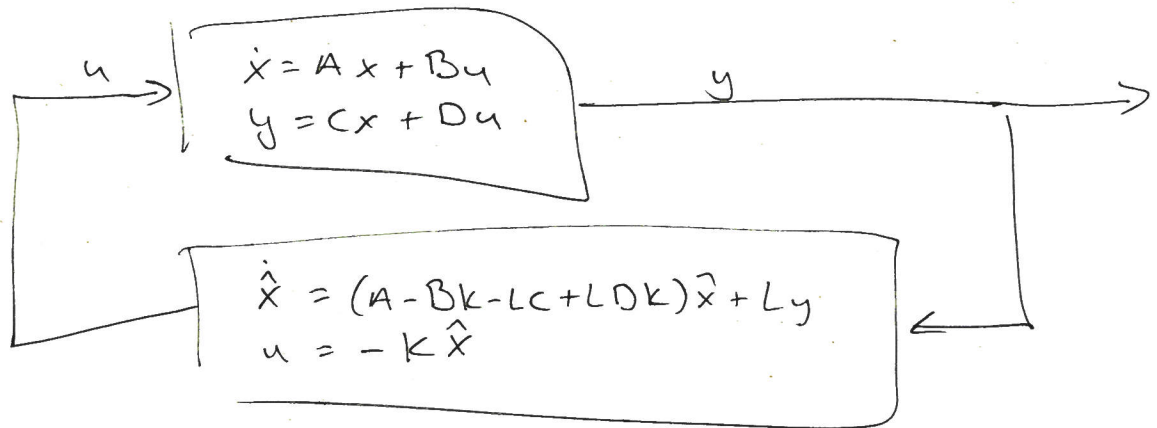 u
ẋ = Ax + Bu
y = Cx + Du
y
x̂̇ = (A-BK-LC+LDK)x̂ + Ly
u = -Kx̂